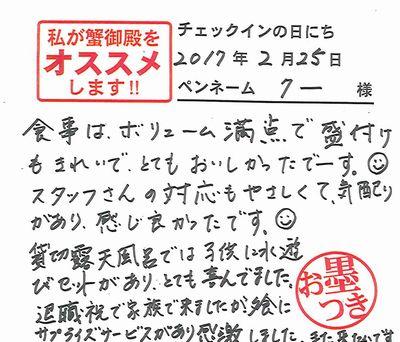 私が蟹御殿を
オススメ
します!!
チェックインの日にち
2017年2月25日
ペンネーム クー 様
食事は、ボリューム満点で盛付け
もきれいで、とてもおいしかったでーす。
スタッフさんの対応もやさしくて、気配り
があり、感じ良かったです。
貸切露天風呂では子供に水遊
びセットがあり、とても喜んでました。
退職祝で家族で来ましたが夕食に
サプライズサービスがあり感激しました。また来たいです
お墨つき